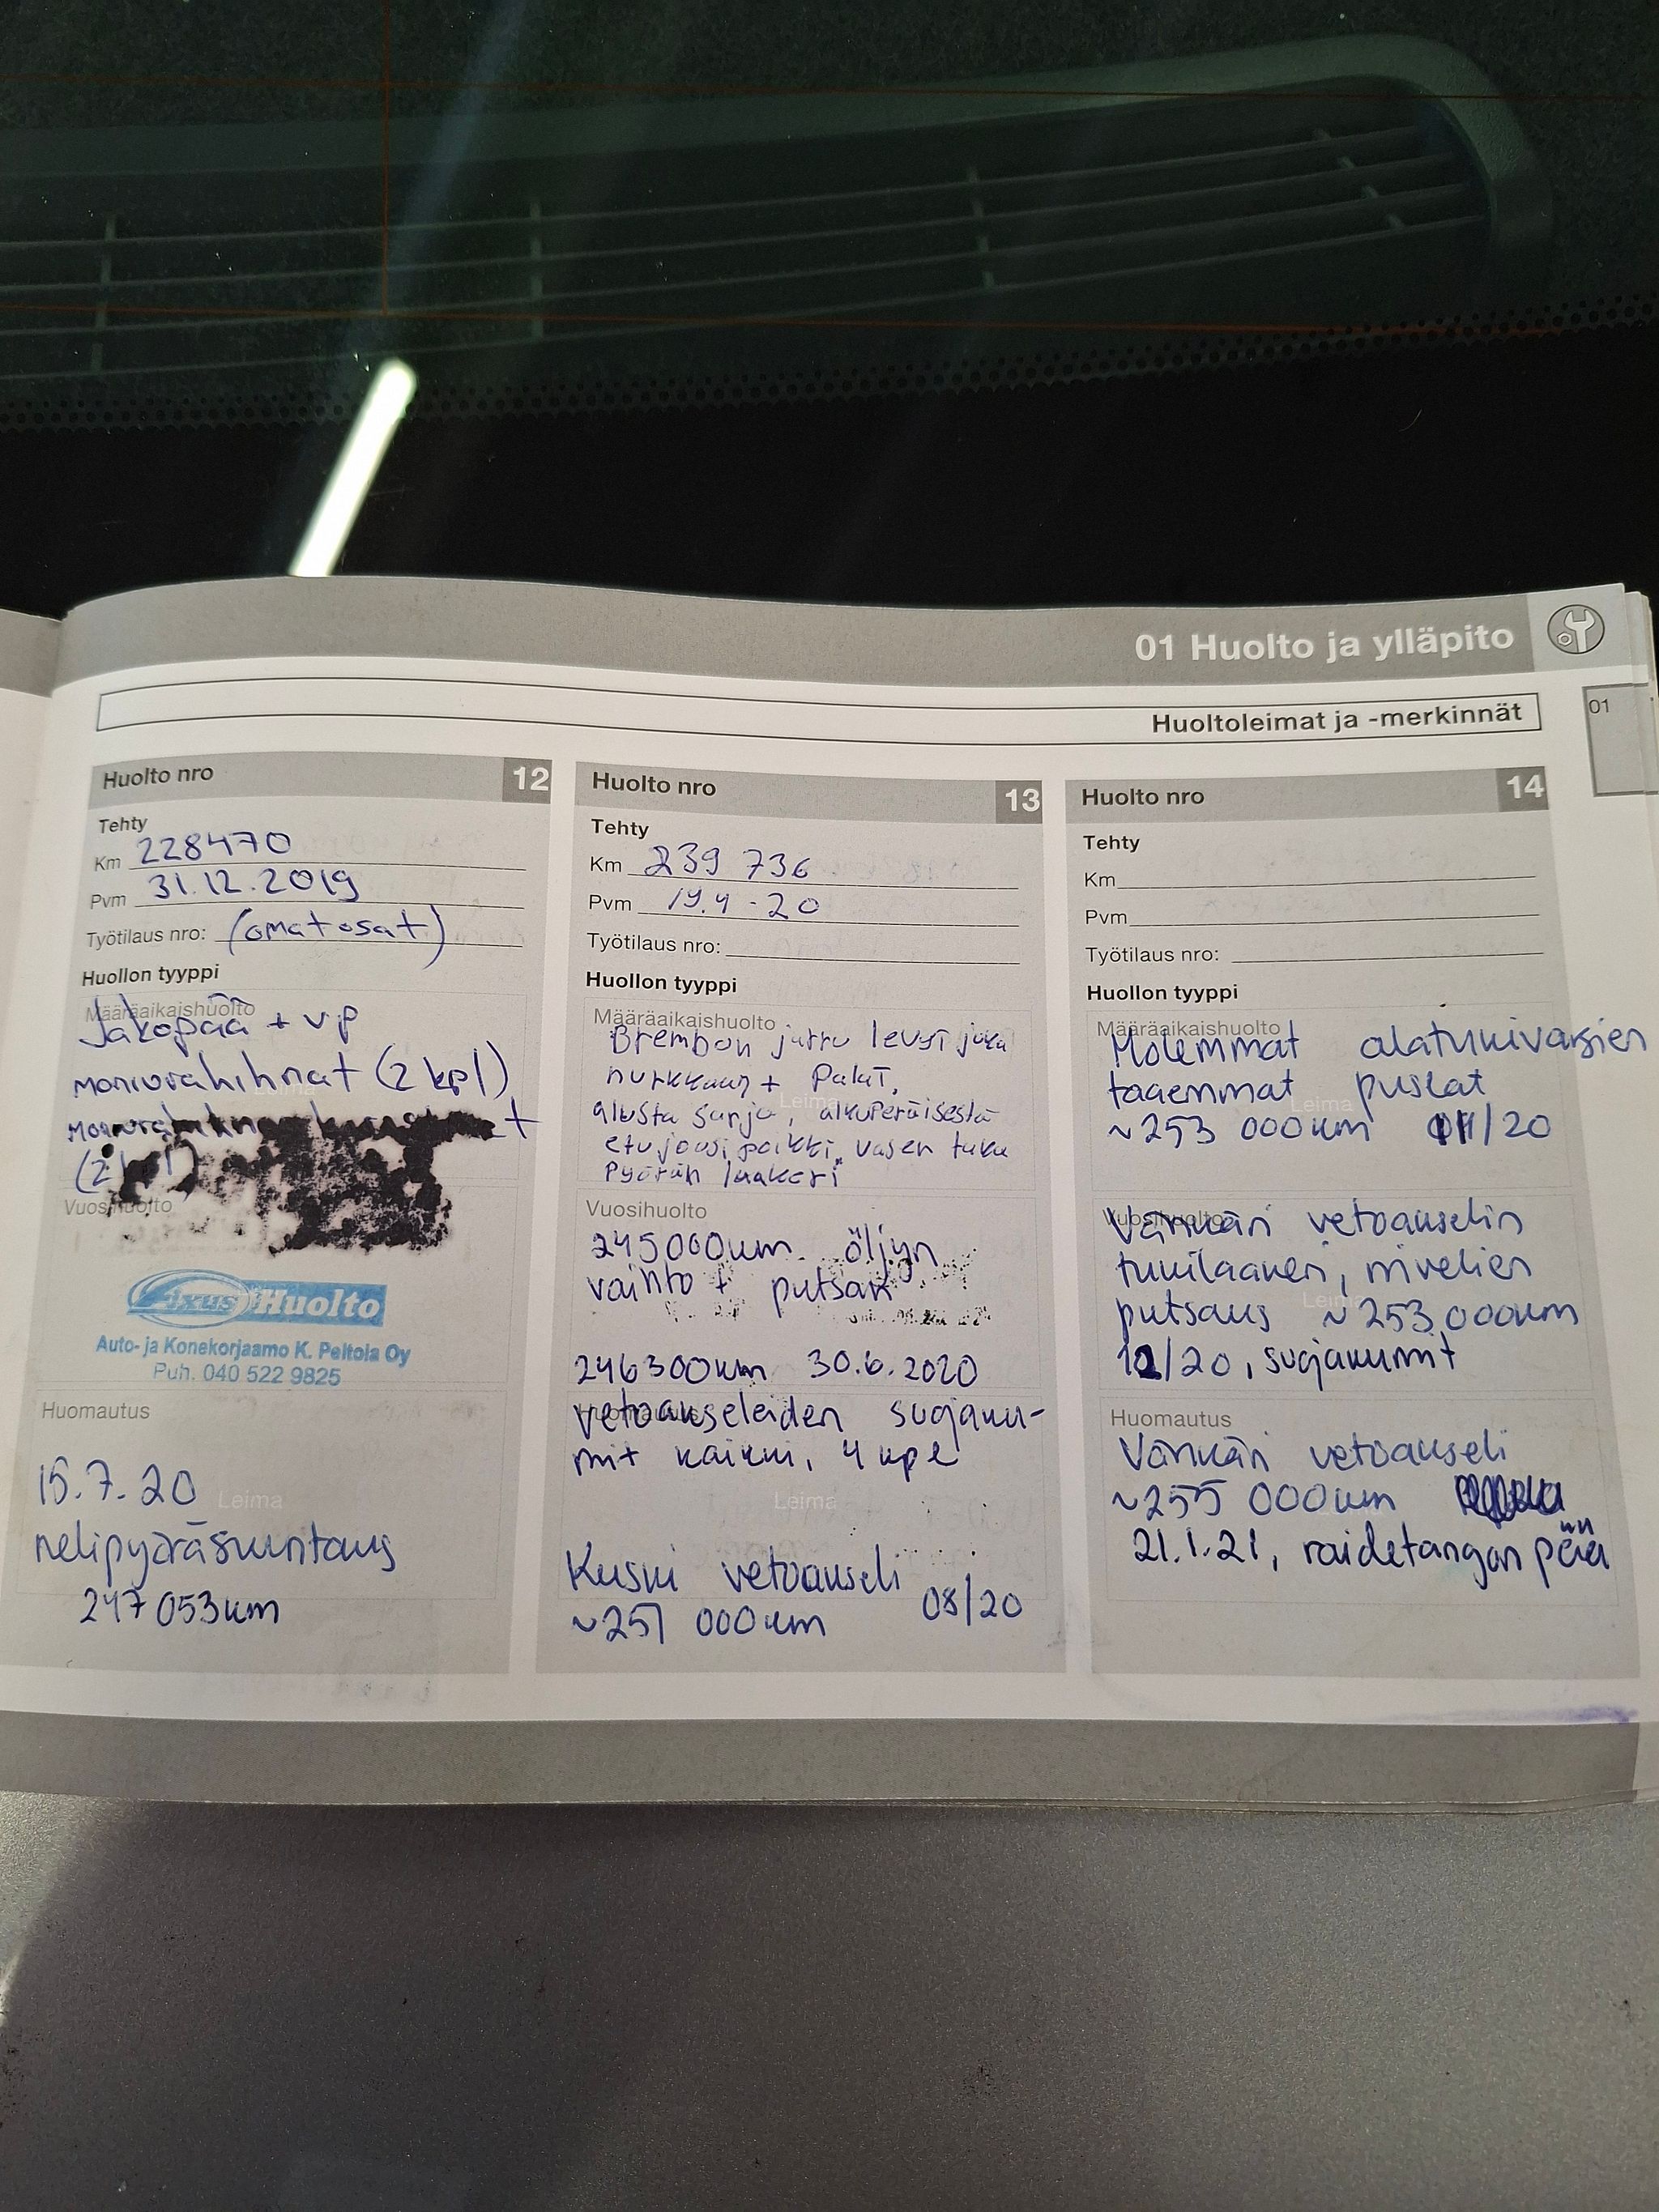 01 Huolto ja ylläpito
Huoltoleimat ja -merkinnät
01
Huolto nro 12
Tehty
Km 228470
Pvm 31.12.2019
Työtilaus nro: (omat osat)
Huollon tyyppi
Määräaikaishuolto
Jakopää + vp
moniurahihnat (2 kpl)
+
(2
Vuosihuolto
Fixus Huolto
Auto- ja Konekorjaamo K. Peltola Oy
Puh. 040 522 9825
Huomautus
15.7.20
Leima
nelipyöräsuuntaus
247 053km
Huolto nro 13
Tehty
Km 239 736
Pvm 19.4-20
Työtilaus nro:
Huollon tyyppi
Määräaikaishuolto
Brembon jarru levyt joka
nurkkaan + Palat,
Leima
alusta sarja, alkuperäisestä
etujousi poikki, vasen taka
Pyörän laakeri
Vuosihuolto
245000km öljyn
vaihto + putsari
246300km 30.6.2020
vetoakseleiden suojaku-
mit kaikki, 4 kpl
Leima
Kuski vetoakseli
~251 000km 08/20
Huolto nro 14
Tehty
Km
Pvm
Työtilaus nro:
Huollon tyyppi
Määräaikaishuolto
Molemmat alatukivarsien
taaemmat puslat
Leima
~253 000km 11/20
Vuosihuolto
Vänkäri vetoakselin
tukilaakeri, nivelien
Leima
putsaus ~253 000km
12/20, suojakumit
Huomautus
Vänkäri vetoakseli
~255 000km
21.1.21, raidetangon pää